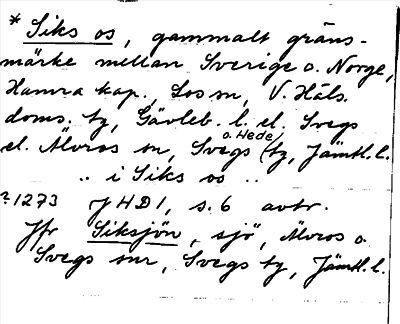 * Siks os, gammalt gräns-
märke mellan Sverige o. Norge,
Hamra kap., Los sn, V. Häls.
doms. tg, Gävleb. l. el. Svegs
el. Älvros sn, Svegs o. Hede tg, Jämtl. l.
.. i Siks os ..
?1273 JHD1, s. 6 avtr.
Jfr Siksjön, sjö, Älvros o.
Svegs snr, Svegs tg, Jämtl. l.